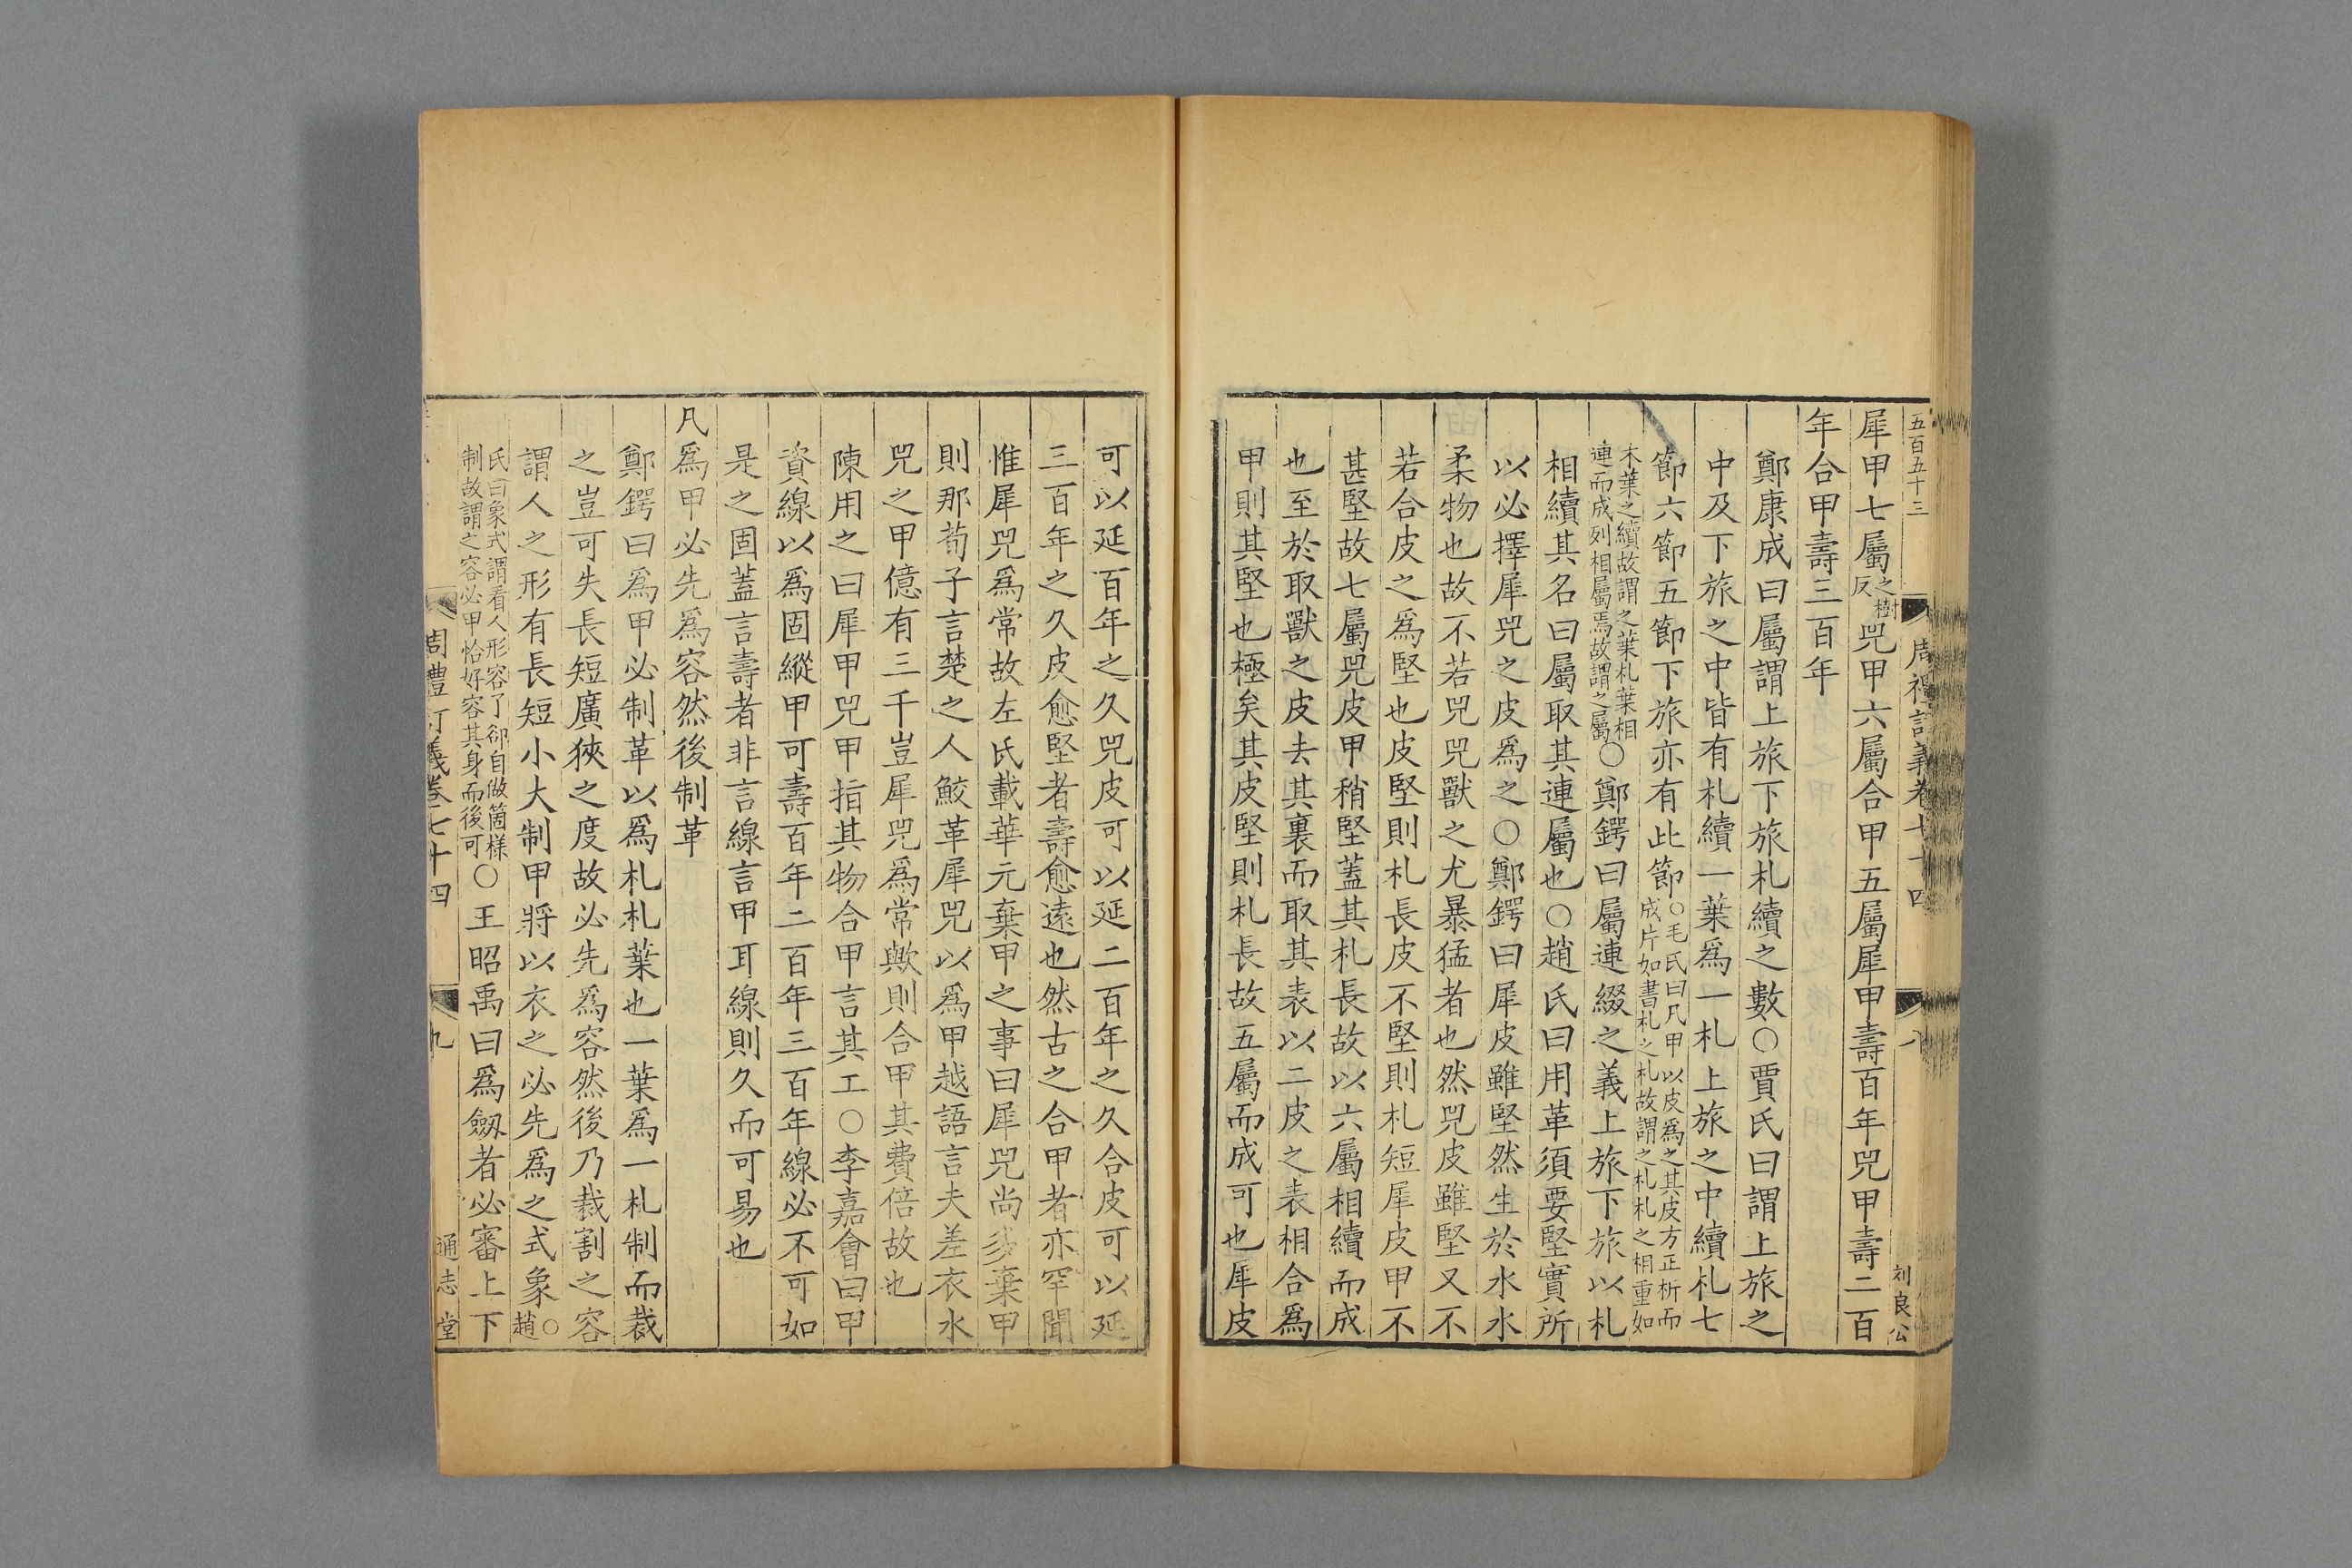 五百五十三
周禮訂義卷七十四
八
刘良公
犀甲七屬之樹反兕甲六屬合甲五屬犀甲壽百年兕甲壽二百
年合甲壽三百年
鄭康成曰屬謂上旅下旅札續之數○賈氏曰謂上旅之
中及下旅之中皆有札續一葉爲一札上旅之中續札七
節六節五節下旅亦有此節○毛氏曰凡甲以皮爲之其皮方正析而成片如書札之札故謂之札札之相重如
木葉之續故謂之葉札葉相連而成列相屬焉故謂之屬○鄭鍔曰屬連綴之義上旅下旅以札
相續其名曰屬取其連屬也○趙氏曰用革須要堅實所
以必擇犀兕之皮爲之○鄭鍔曰犀皮雖堅然生於水水
柔物也故不若兕兕獸之尤暴猛者也然兕皮雖堅又不
若合皮之爲堅也皮堅則札長皮不堅則札短犀皮甲不
甚堅故七屬兕皮甲稍堅蓋其札長故以六屬相續而成
也至於取獸之皮去其裏而取其表以二皮之表相合爲
甲則其堅也極矣其皮堅則札長故五屬而成可也犀皮
可以延百年之久兕皮可以延二百年之久合皮可以延
三百年之久皮愈堅者壽愈遠也然古之合甲者亦罕聞
惟犀兕爲常故左氏載華元棄甲之事曰犀兕尚多棄甲
則那荀子言楚之人鮫革犀兕以爲甲越語言夫差衣水
兕之甲億有三千豈犀兕爲常歟則合甲其費倍故也
陳用之曰犀甲兕甲指其物合甲言其工○李嘉會曰甲
資線以爲固縱甲可壽百年二百年三百年線必不可如
是之固蓋言壽者非言線言甲耳線則久而可易也
凡爲甲必先爲容然後制革
鄭鍔曰爲甲必制革以爲札札葉也一葉爲一札制而裁
之豈可失長短廣狹之度故必先爲容然後乃裁割之容
謂人之形有長短小大制甲將以衣之必先爲之式象○趙
氏曰象式謂看人形容了卻自做箇樣制故謂之容必甲恰好容其身而後可○王昭禹曰爲劔者必審上下
周禮訂義卷七十四
九
通志堂